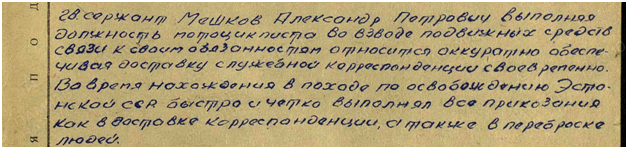 гв. сержант Мешков Александр Петрович выполняя
должность мотоциклиста во взводе подвижных средств
связи к своим обязанностям относится аккуратно обеспе-
чивая доставку служебной корреспонденции своевременно.
Во время нахождения в походе по освобождению Эсто-
нской ССР быстро и четко выполнял все приказания
как в доставке корреспонденции, а также в переброске
людей.
п о д
я